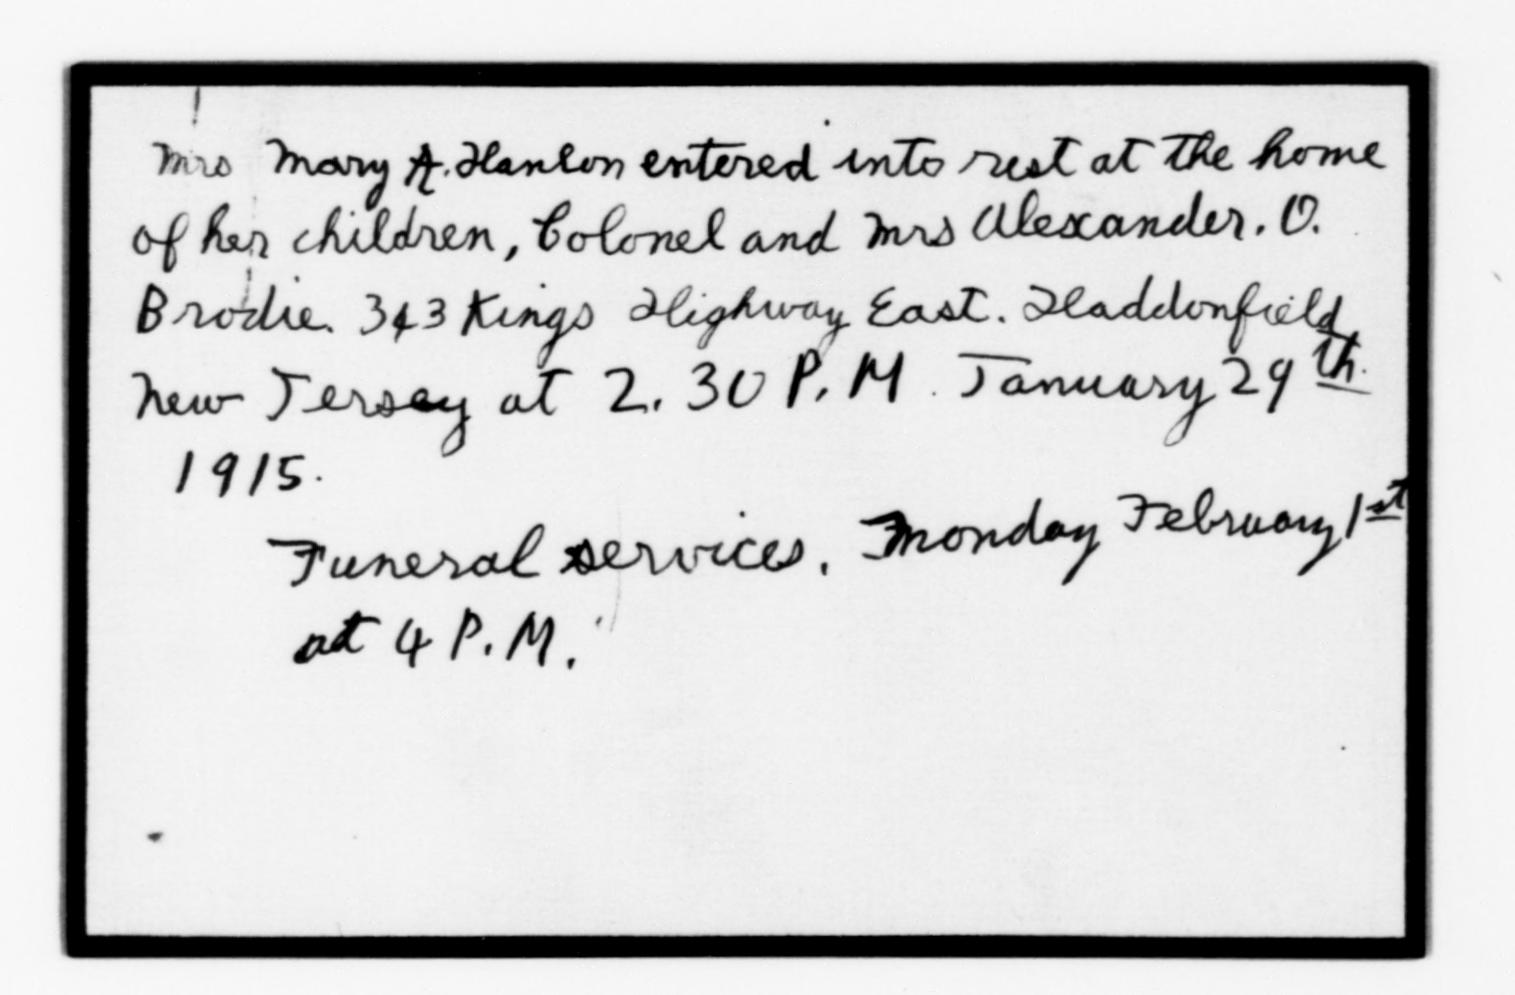 Mrs Mary A. Hanlon entered into rest at the home
of her children, Colonel and Mrs Alexander. O.
Brodie. 343 Kings Highway East. Haddonfield,
New Jersey at 2.30 P.M. January 29th.
1915.
Funeral services. Monday February 1st
at 4 P.M.